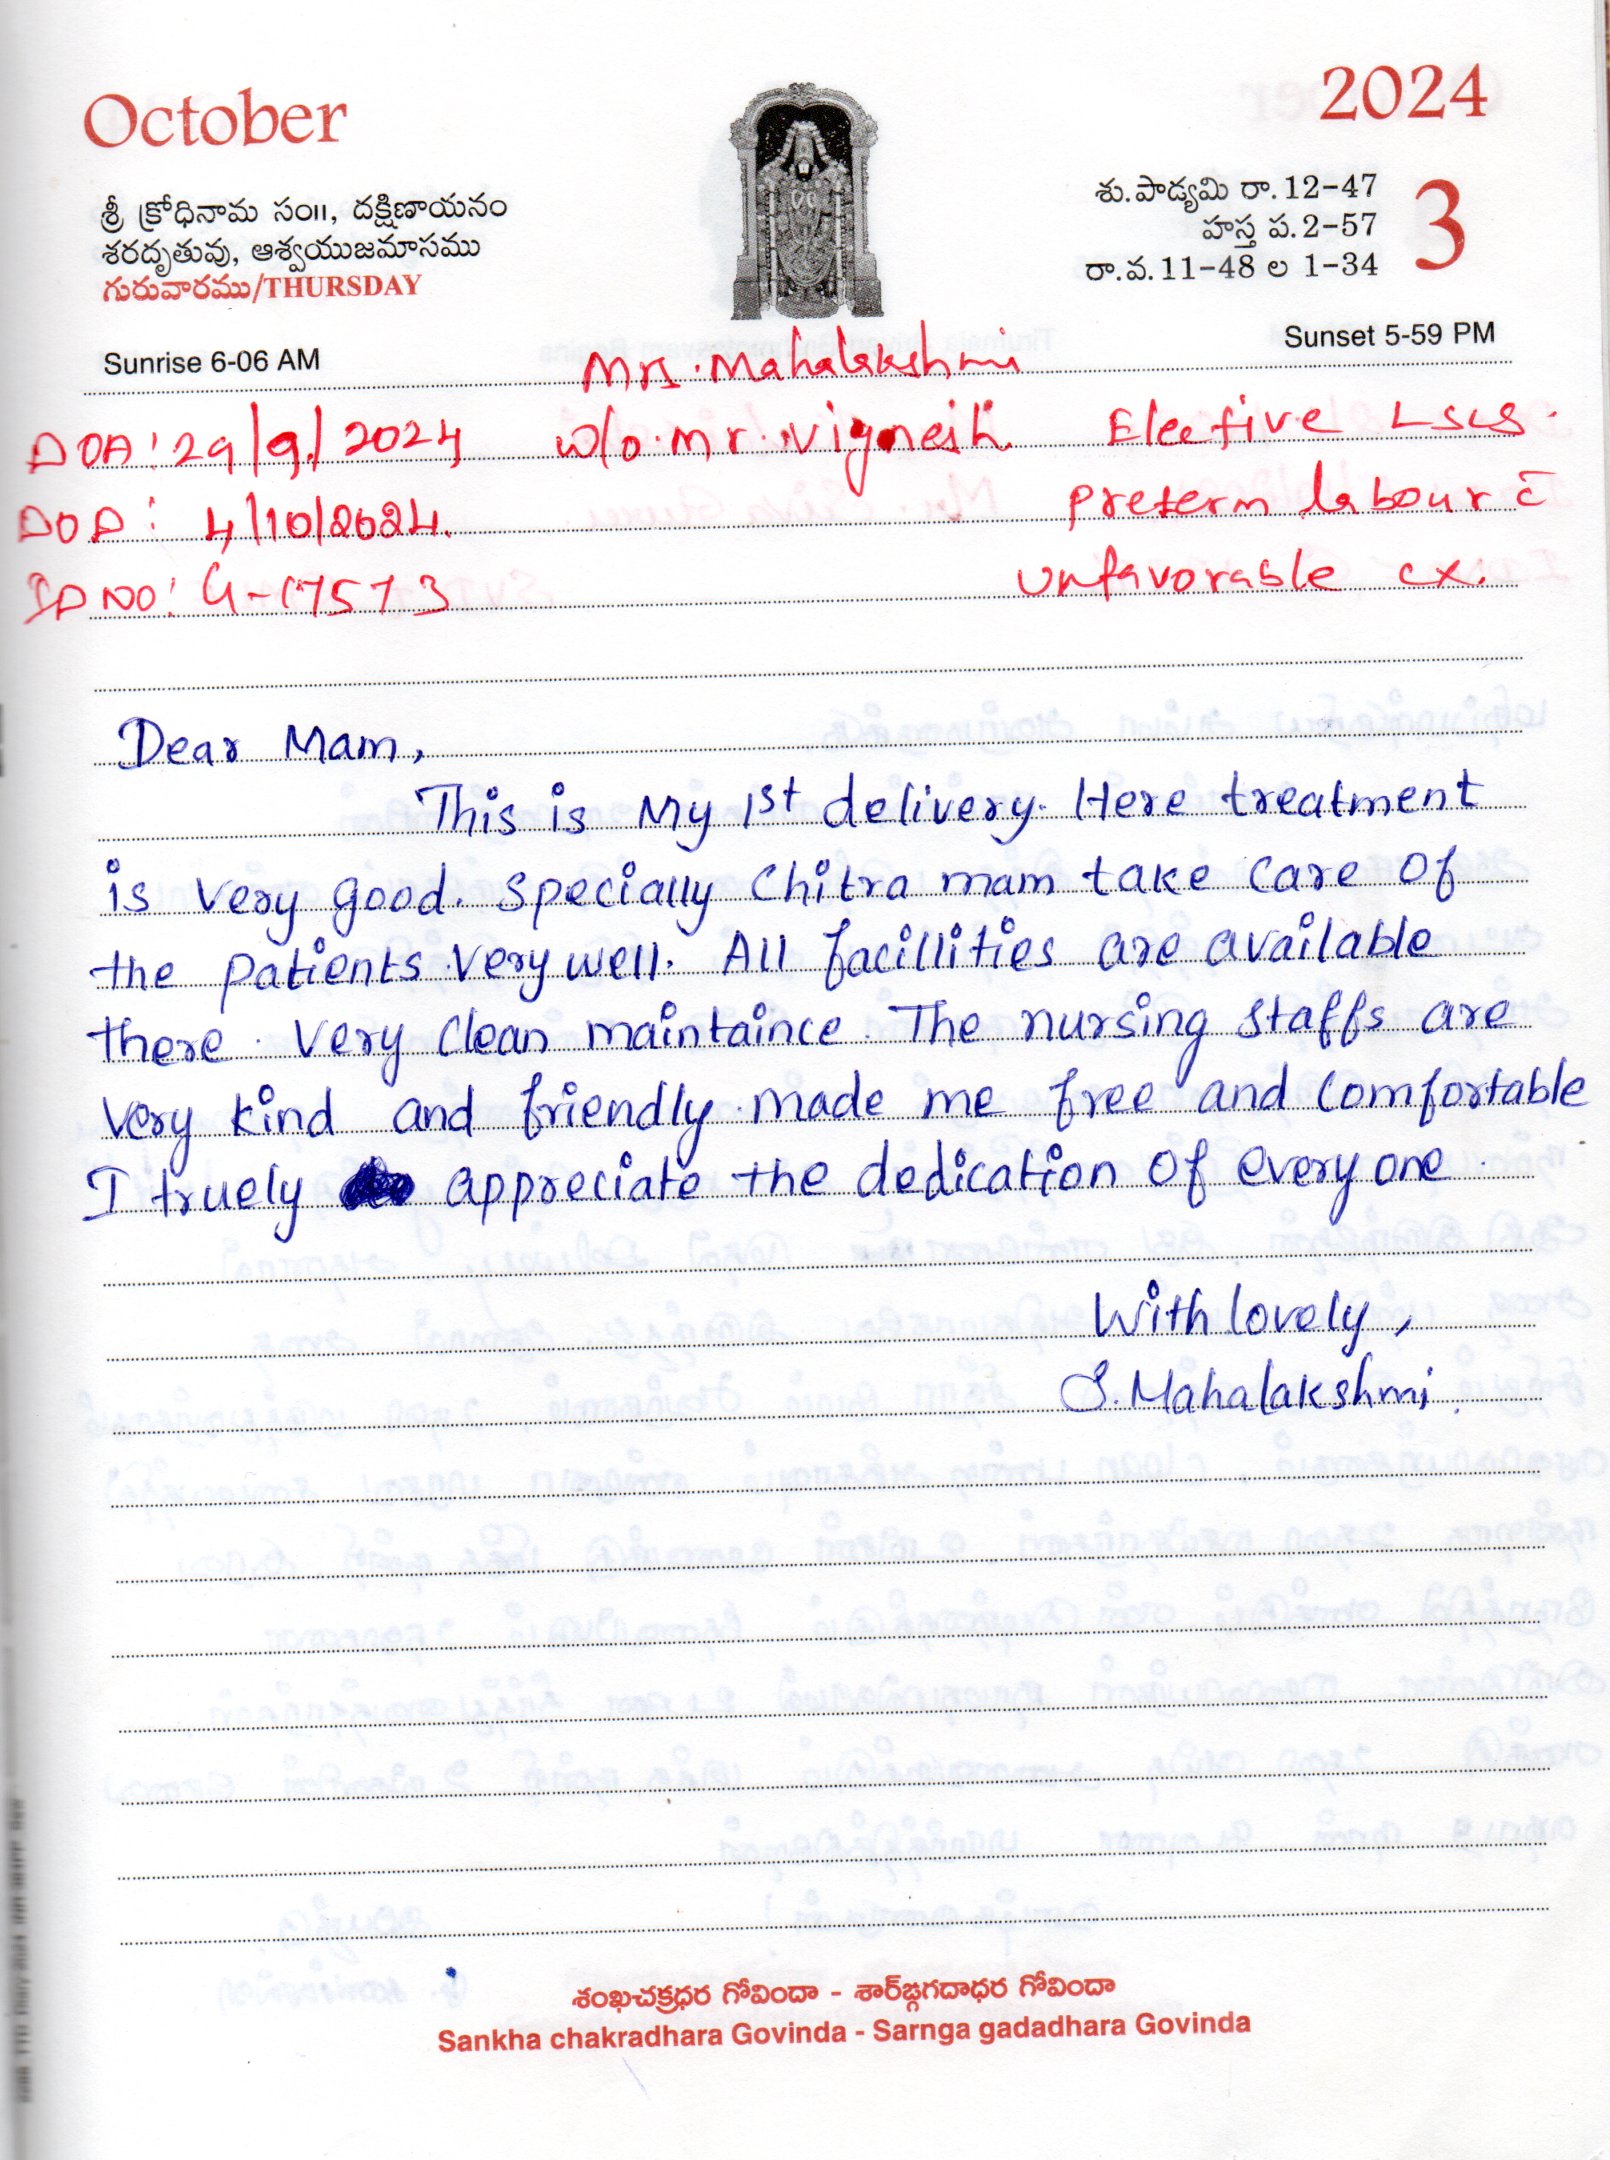 October
2024
శ్రీ క్రోధినామ సం॥, దక్షిణాయనం
శరదృతువు, ఆశ్వయుజమాసము
గురువారము/THURSDAY
శు.పాడ్యమి రా.12-47
హస్త ప.2-57
రా.వ.11-48 ల 1-34
3
Sunrise 6-06 AM
Sunset 5-59 PM
Mrs. Mahalakshmi
DOA: 29/9/2024 w/o. mr. vignesh. Elective LSCS.
DOD: 4/10/2024. preterm labour c̄
IP NO: G-17573 unfavorable cx.
Dear Mam,
This is My 1st delivery. Here treatment
is very good. specially Chitra mam take care of
the patients very well. All facillities are available
there. Very clean maintaince. The nursing staffs are
very kind and friendly made me free and comfortable
I truely appreciate the dedication of everyone.
With lovely,
S. Mahalakshmi.
శంఖచక్రధర గోవిందా - శార్ఙ్గగదాధర గోవిందా
Sankha chakradhara Govinda - Sarnga gadadhara Govinda